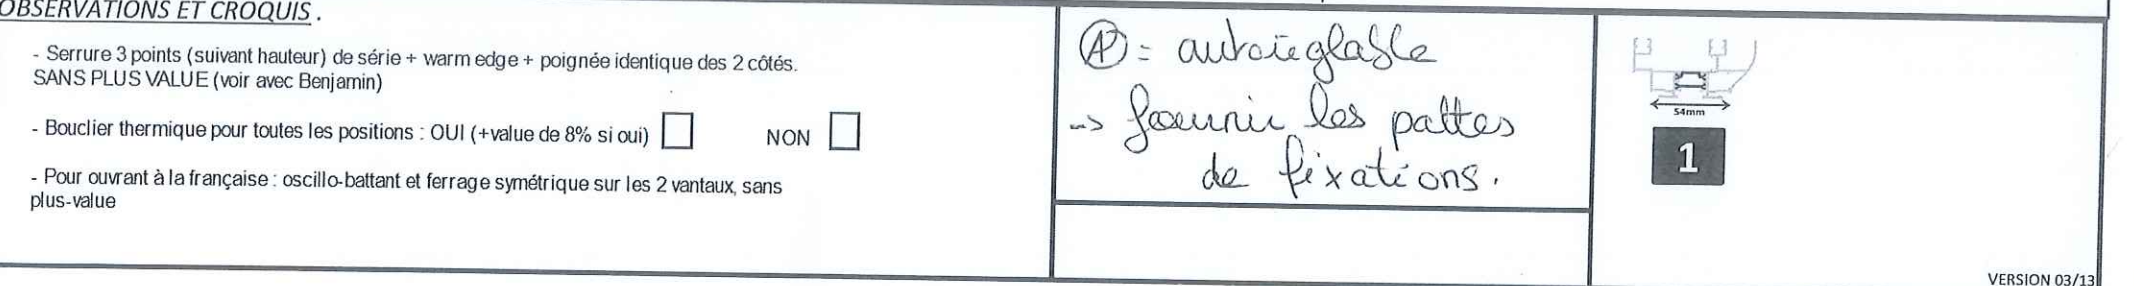 OBSERVATIONS ET CROQUIS .
- Serrure 3 points (suivant hauteur) de série + warm edge + poignée identique des 2 côtés.
SANS PLUS VALUE (voir avec Benjamin)
- Bouclier thermique pour toutes les positions : OUI (+value de 8% si oui) NON
- Pour ouvrant à la française : oscillo-battant et ferrage symétrique sur les 2 vantaux, sans
plus-value
= autoréglable
-> fournir les pattes
de fixations.
54mm
1
VERSION 03/13